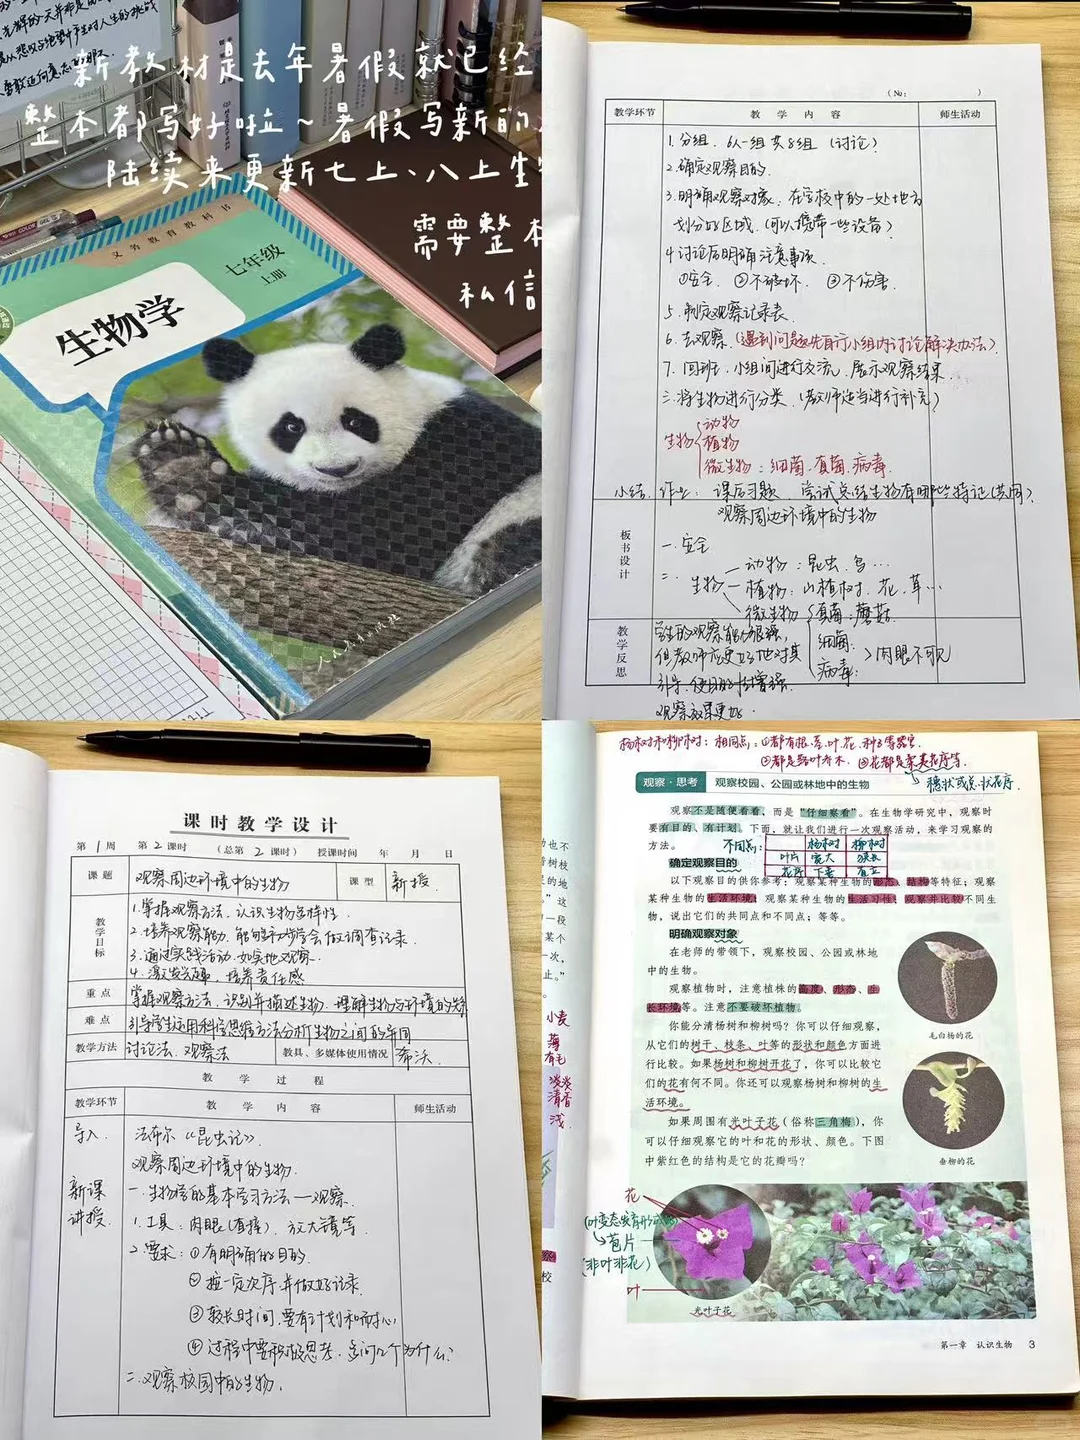 新教材是去年暑假就已经
整本都写好啦~暑假写新的
陆续来更新七上、八上生
需要整本
私信
义务教育教科书
七年级
上册
生物学
人民教育出版社
(No: )
教学环节 教学内容 师生活动
1.分组. 6人一组 共8组 (讨论)
2.确定观察目的.
3.明确观察对象. 在学校中的一处地方
划分好区域. (可以携带一些设备)
4.讨论后明确注意事项.
①安全 ②不破坏. ③不伤害.
5.制定观察记录表.
6.去观察. (遇到问题先自行小组内讨论解决办法)
7.回班. 小组间进行交流. 展示观察结果
三.将生物进行分类. (教师适当进行补充)
生物 动物
植物
微生物:细菌.真菌.病毒.
小结. 作业: 课后习题. 尝试总结生物有哪些特征(共同).
观察周边环境中的生物
板书设计
一.安全
二. 生物 动物:昆虫.鸟…
植物:山楂树.花.草…
微生物 真菌:蘑菇
细菌:
病毒: >肉眼不可见
教学反思
学生的观察能力很强,
但教师应更好地对其
引导.使目的性增强.
观察效果更好.
课时教学设计
第1周 第2课时 (总第2课时) 授课时间 年 月 日
课题 观察周边环境中的生物 课型 新授.
教学目标
1.掌握观察方法.认识生物多样性.
2.培养观察能力.能初步学会做调查记录.
3.通过实践活动.如实地观察.
4.激发兴趣.培养责任感
重点 掌握观察方法.识别并描述生物.理解生物与环境的关系
难点 引导学生运用科学思维方法分析生物之间的异同
教学方法 讨论法.观察法 教具、多媒体使用情况 希沃.
教学过程
教学环节 教学内容 师生活动
导入. 法布尔《昆虫记》.
观察周边环境中的生物.
新课讲授.
一.生物学的基本学习方法——观察.
1.工具:肉眼(直接). 放大镜等
2.要求:①有明确的目的.
②按一定次序.并做好记录.
③较长时间.要有计划和耐心
④过程中要积极思考.多问几个为什么?
二.观察校园中的生物.
杨树和柳树:相同点:①都有根、茎、叶、花、种子等器官.
②都是落叶乔木. ③花都是柔荑花序等.
穗状或总状花序.
观察·思考 观察校园、公园或林地中的生物
观察不是随便看看,而是“仔细察看”。在生物学研究中,观察时
要有目的、有计划。下面,就让我们进行一次观察活动,来学习观察的
方法。
不同点: 杨树 柳树
叶片 宽大 狭长
花序 下垂 直立
确定观察目的
以下观察目的供你参考:观察某种生物的形态、结构等特征;观察
某种生物的生活环境;观察某种生物的生活习性;观察并比较不同生
物,说出它们的共同点和不同点;等等。
明确观察对象
在老师的带领下,观察校园、公园或林地
中的生物。
观察植物时,注意植株的高度、形态、生
长环境等。注意不要破坏植物。
你能分清杨树和柳树吗?你可以仔细观察,
从它们的树干、枝条、叶等的形状和颜色方面进
行比较。如果杨树和柳树开花了,你可以比较它
们的花有何不同。你还可以观察杨树和柳树的生
活环境。
如果周围有光叶子花(俗称三角梅),你
可以仔细观察它的叶和花的形状、颜色。下图
中紫红色的结构是它的花瓣吗?
毛白杨的花
垂柳的花
花
(叶变态发育形成的)
苞片
(非叶非花)
叶
光叶子花
第一章 认识生物 3
小麦
薄
有毛
淡淡
清香
浅.